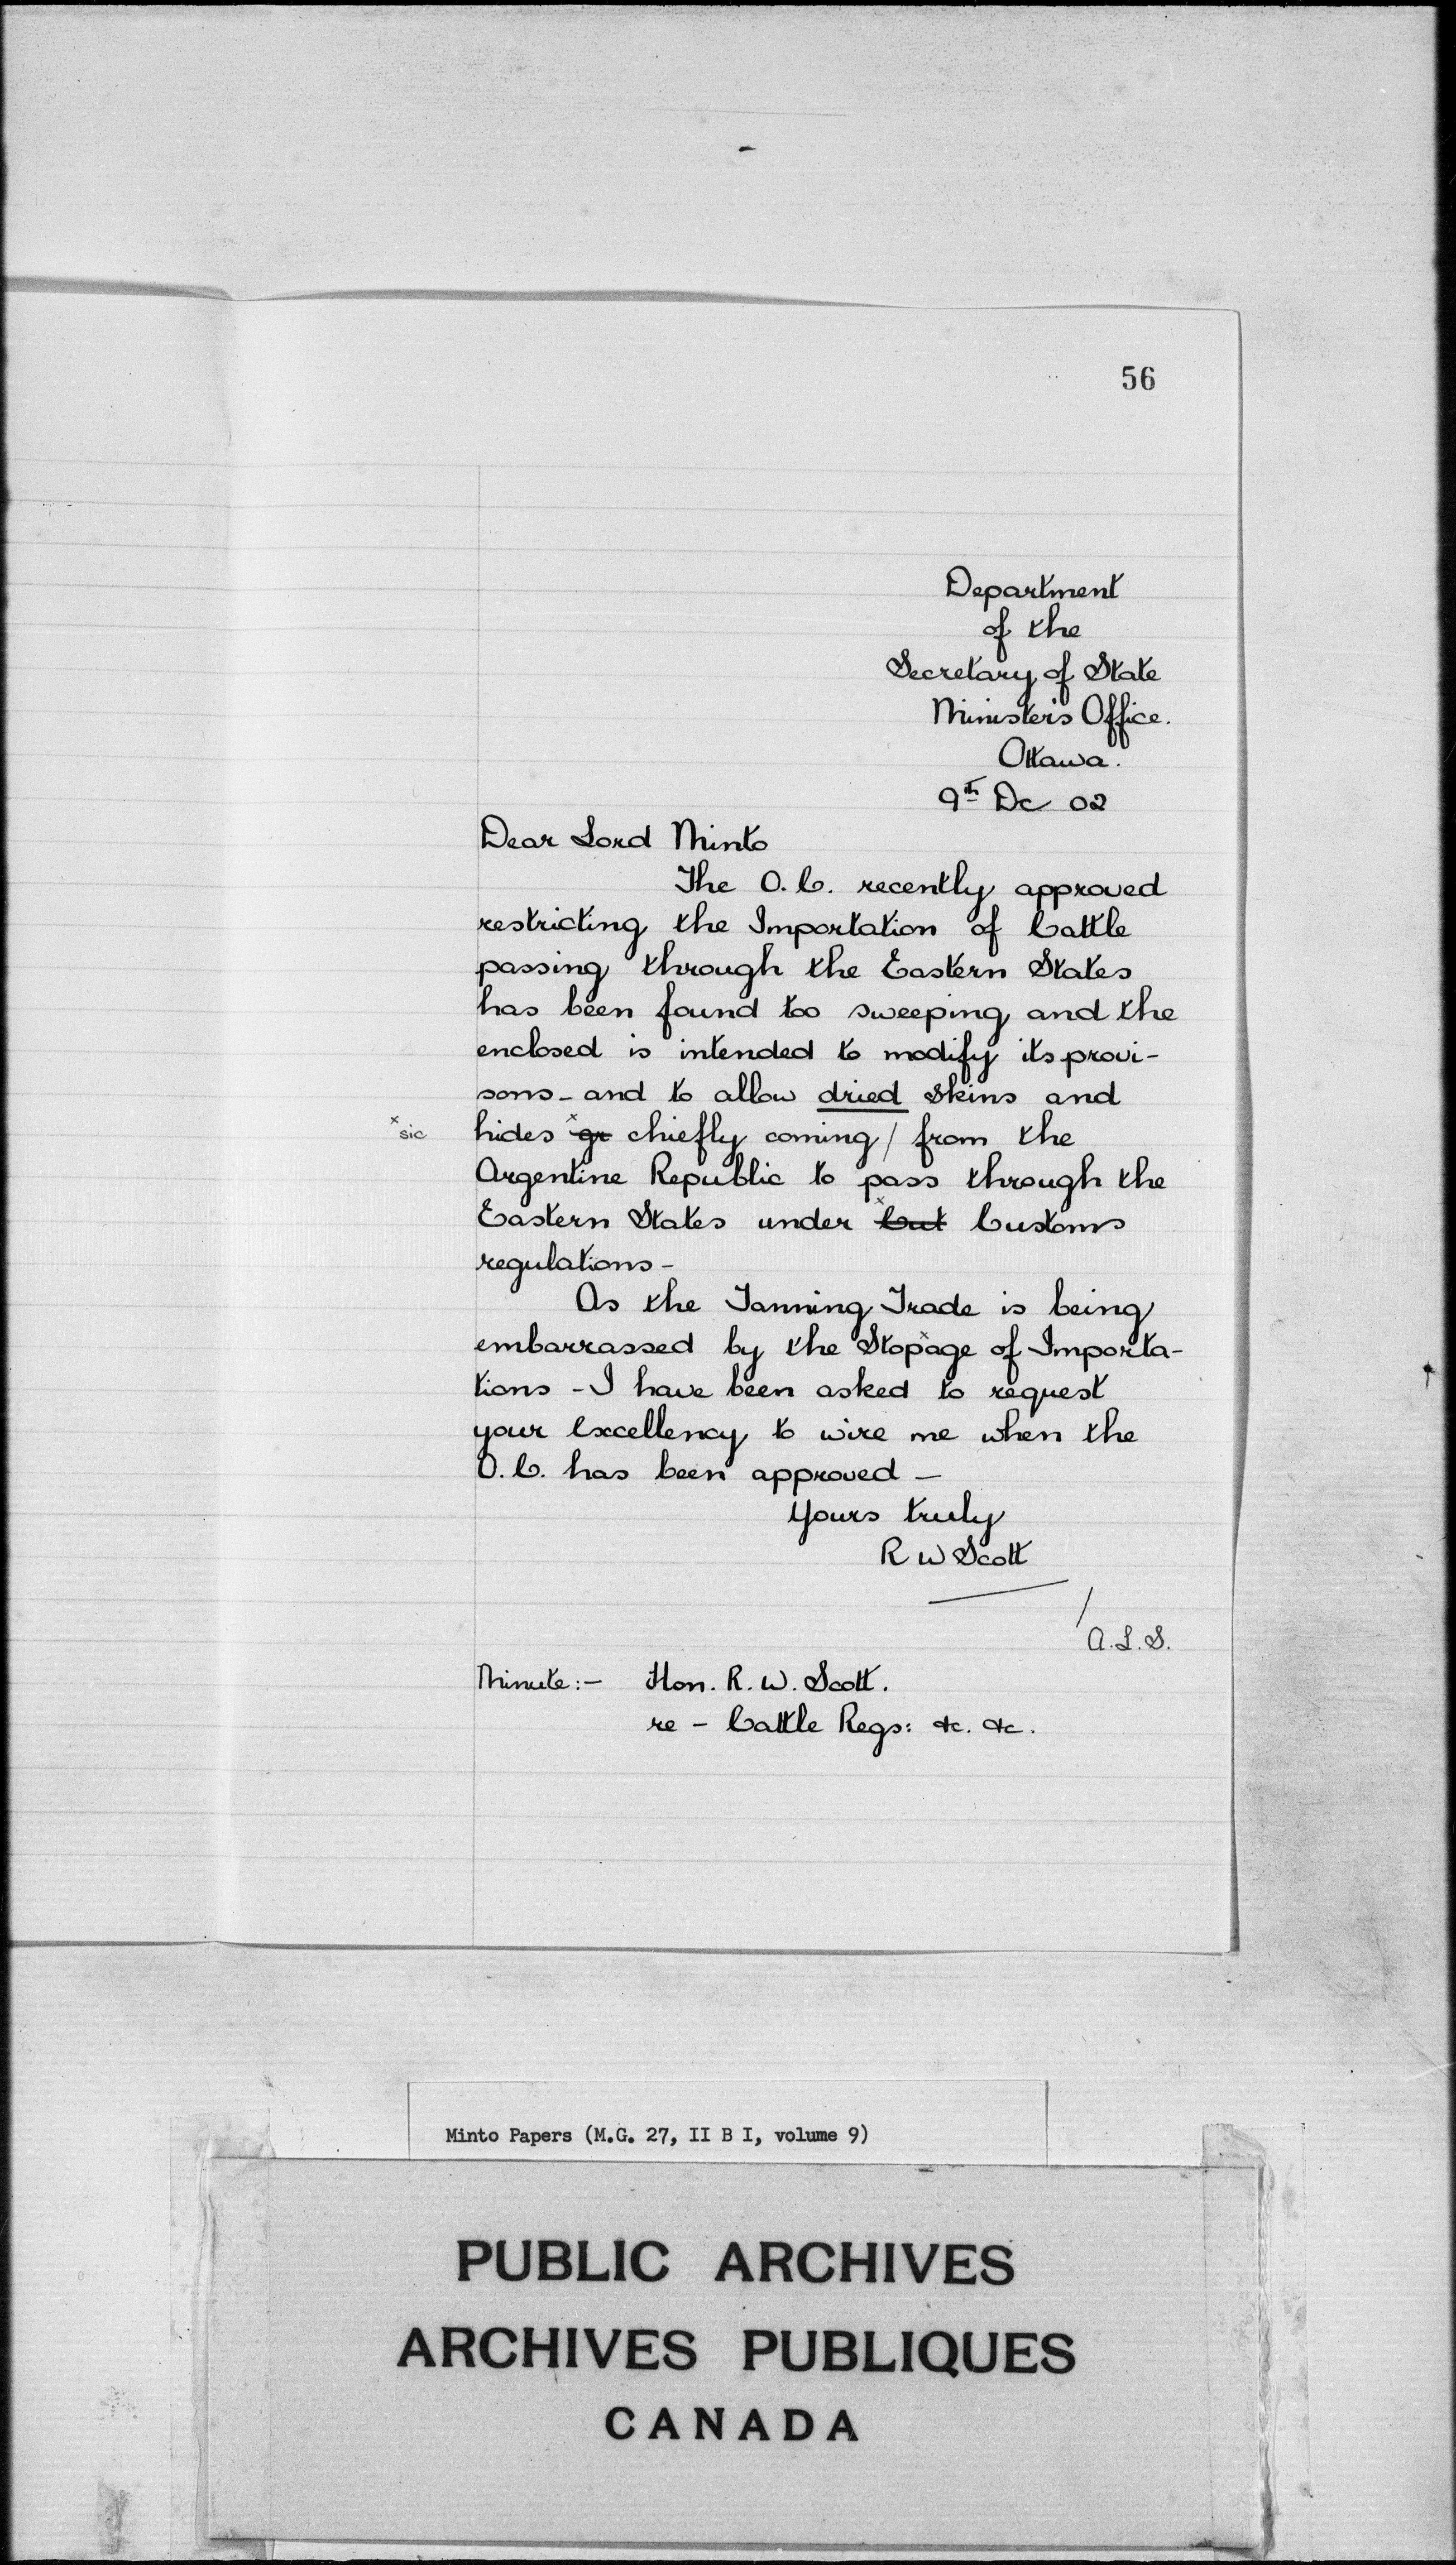 56
Department
of the
Secretary of State
Minister's Office.
Ottawa.
9th Dc 02
Dear Lord Minto
The O.C. recently approved
restricting the Importation of Cattle
passing through the Eastern States
has been found too sweeping and the
enclosed is intended to modify its provi-
sons - and to allow dried skins and
x sic hides x gr chiefly coming / from the
Argentine Republic to pass through the
Eastern States under x Cut Customs
regulations -
As the Tanning Trade is being
embarrassed by the Stopxage of Importa-
tions - I have been asked to request
your Excellency to wire me when the
O.C. has been approved -
Yours truly
R W Scott
/
A.L.S.
Minute :- Hon. R. W. Scott.
re - Cattle Regs: &c. &c.
Minto Papers (M.G. 27, II B I, volume 9)
PUBLIC ARCHIVES
ARCHIVES PUBLIQUES
CANADA